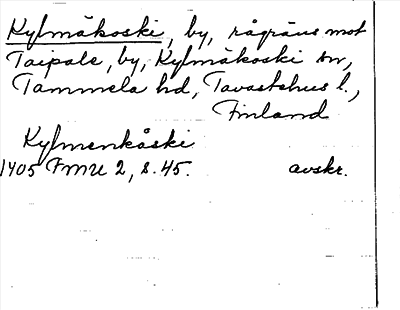 Kylmäkoski, by, rågräns mot
Taipale, by, Kylmäkoski sn,
Tammela hd, Tavastehus l.,
Finland
Kylmenkåski
1405 FMU 2, s. 45. avskr.